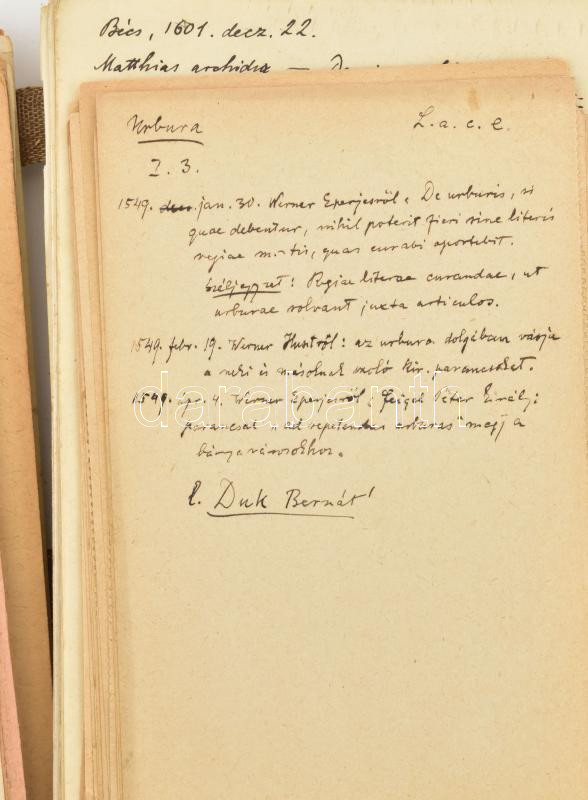 Bécs, 1601. decz. 22.
Matthias archidux —
Urbura L. a. c. e.
I. 3.
1549. jan. 30. Werner Eperjesről: De urburis, si
quae debentur, nihil poterit fieri sine literis
regiae m-tis, quas curabi oportebit.
Széljegyzet: Regiae literae curandae, ut
urburae solvant juxta articulos.
1549. febr. 19. Werner Husztról: az urbura dolgában várja
a neki és másoknak szoló kir. parancsokat.
1549. apr. 4. Werner Eperjesről: Feigel Péter királyi
paranccsal "ad repetendas urburas" megy a
bányavárosokhoz.
l. Duk Bernát!
darabanth